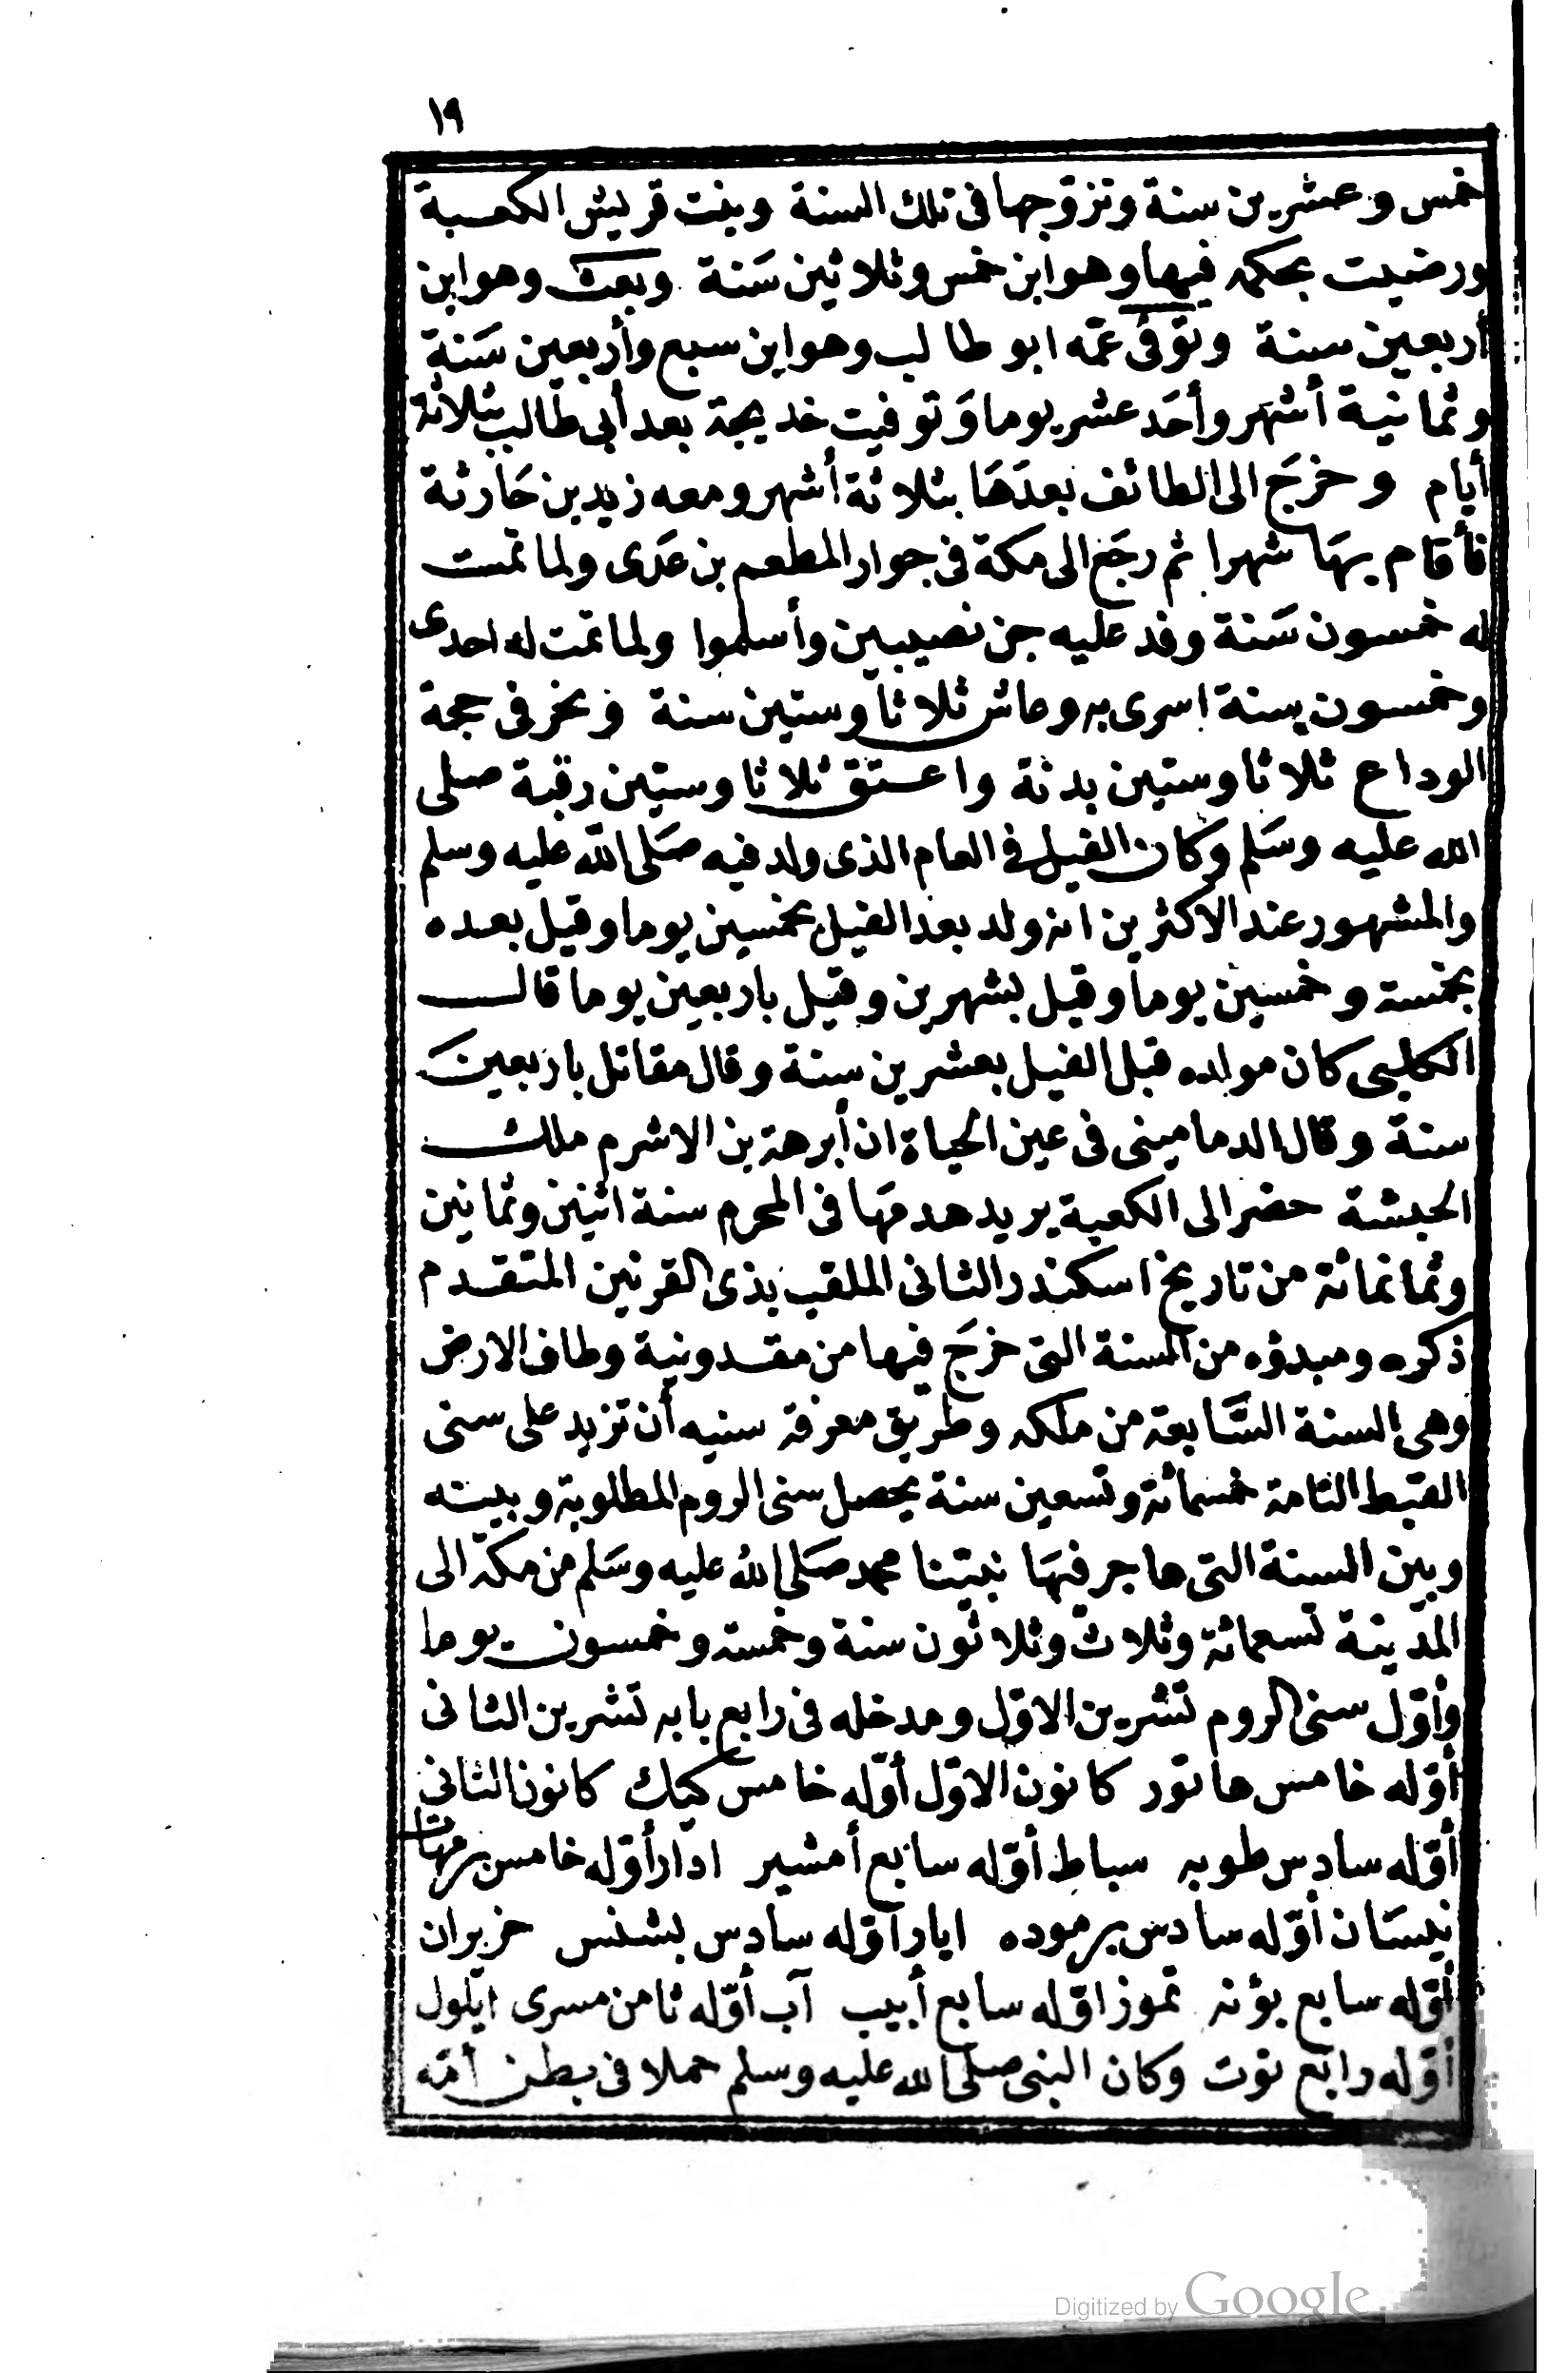 ١٩
خمس وعشرين سنة وتزوّجها فى تلك السنة وبنت قريش الكعبة
ورضيت بحكمه فيها وهو ابن خمس وثلاثين سَنة وبعث وهو ابن
أربعين سنة وتوفى عمّه ابو طالب وهو ابن سبع وأربعين سَنة
وثمانية أشهر وأحَد عشر يوما وَتوفيت خديجة بعد أبى طالب بثلاثة
أيام وخرَج الى الطائف بعدَهَا بثلاثة أشهر ومعه زيد بن حَارثة
فأقام بهَا شهرا ثم رجَع الى مكة فى جوار المطعم بن عَدى ولما تمت
له خمسون سَنة وفد عليه جن نصيبين وأسلموا ولما تمت له احدى
وخمسون سنة اسرى به وعاش ثلاثا وستين سنة ونحر فى حجة
الوداع ثلاثا وستين بدنة واعتق ثلاثا وستين رقبة صلى
الله عليه وسَلم وكان الفيل فى العام الذى ولد فيه صَلى الله عليه وسلم
والمشهور عند الاكثرين انه ولد بعد الفيل بخمسين يوما وقيل بعده
بخمسة وخمسين يوما وقيل بشهرين وقيل باربعين يوما قال
الكلبى كان مولده قبل الفيل بعشرين سنة وقال مقاتل باربعينَ
سنة وقال الدمامينى فى عين الحياة ان أبرهة بن الاشرم ملك
الحبشة حضر الى الكعبة يريد هدمَها فى المحرم سنة اثنين وثمانين
وثمانمائة من تاريخ اسكندر الثانى الملقب بذى القرنين المتقدم
ذكره ومبدؤه من السنة التى خرَج فيها من مقدونية وطاف الارض
وهى السنة السَّابعة من ملكه وطريق معرفة سنيه أن تزيد على سنى
القبط التامة خمسمائة وتسعين سنة يحصل سنى الروم المطلوبة وبينه
وبين السنة التى هاجر فيهَا نبيّنا محمد صَلى الله عليه وسَلم من مكة الى
المدينة تسعمائة وثلاث وثلاثون سنة وخمسة وخمسون يوما
وأوّل سنى الروم تشرين الاوّل ومدخله فى رابع بابه تشرين الثانى
أوّله خامس هاتور كانون الاوّل أوّله خامس كيك كانون الثانى
أوّله سادس طوبه سباط أوّله سابع أمشير ادار أوّله خامس برمهات
نيسَان أوّله سادس برموده ايار أوّله سادس بشنس حزيران
أوّله سابع بؤنه تموز اوّله سابع أبيب آب أوّله ثامن مسرى ايلول
أوّله رابع توت وكان النبى صلى الله عليه وسلم حملا فى بطن أمّه
Digitized by Google